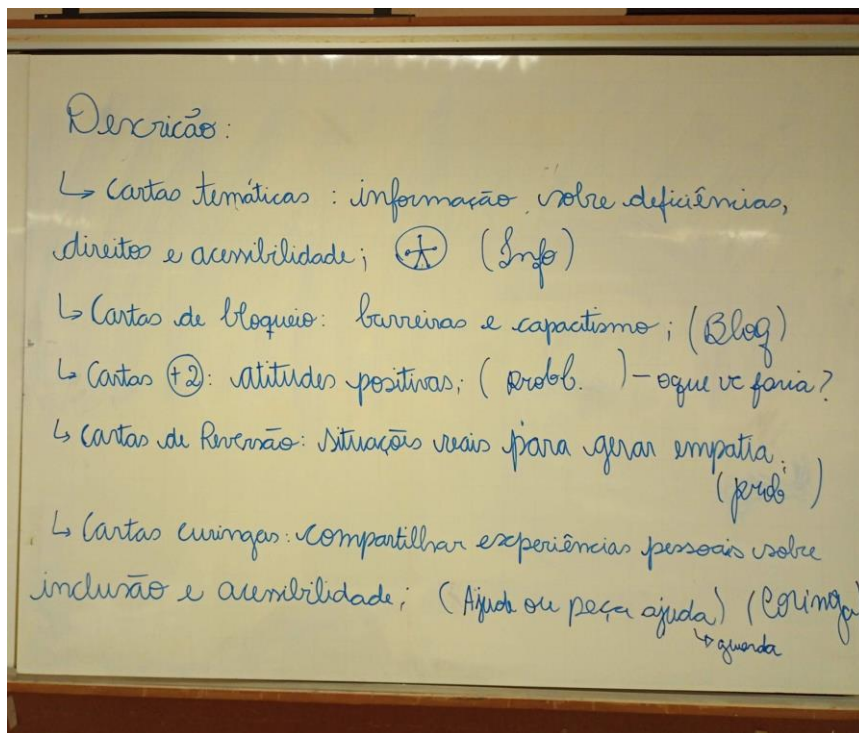 Descricão:
↳ Cartas temáticas: informação sobre deficiências,
direitos e acessibilidade; (Info)
↳ Cartas de bloqueio: barreiras e capacitismo; (Bloq)
↳ Cartas +2: atitudes positivas; ( probl. ) - oque vc faria?
↳ Cartas de Reversão: situações reais para gerar empatia.
(prob )
↳ Cartas curingas: compartilhar experiências pessoais sobre
inclusão e acessibilidade; (Ajude ou peça ajuda) (Coringa)
↳ guarda